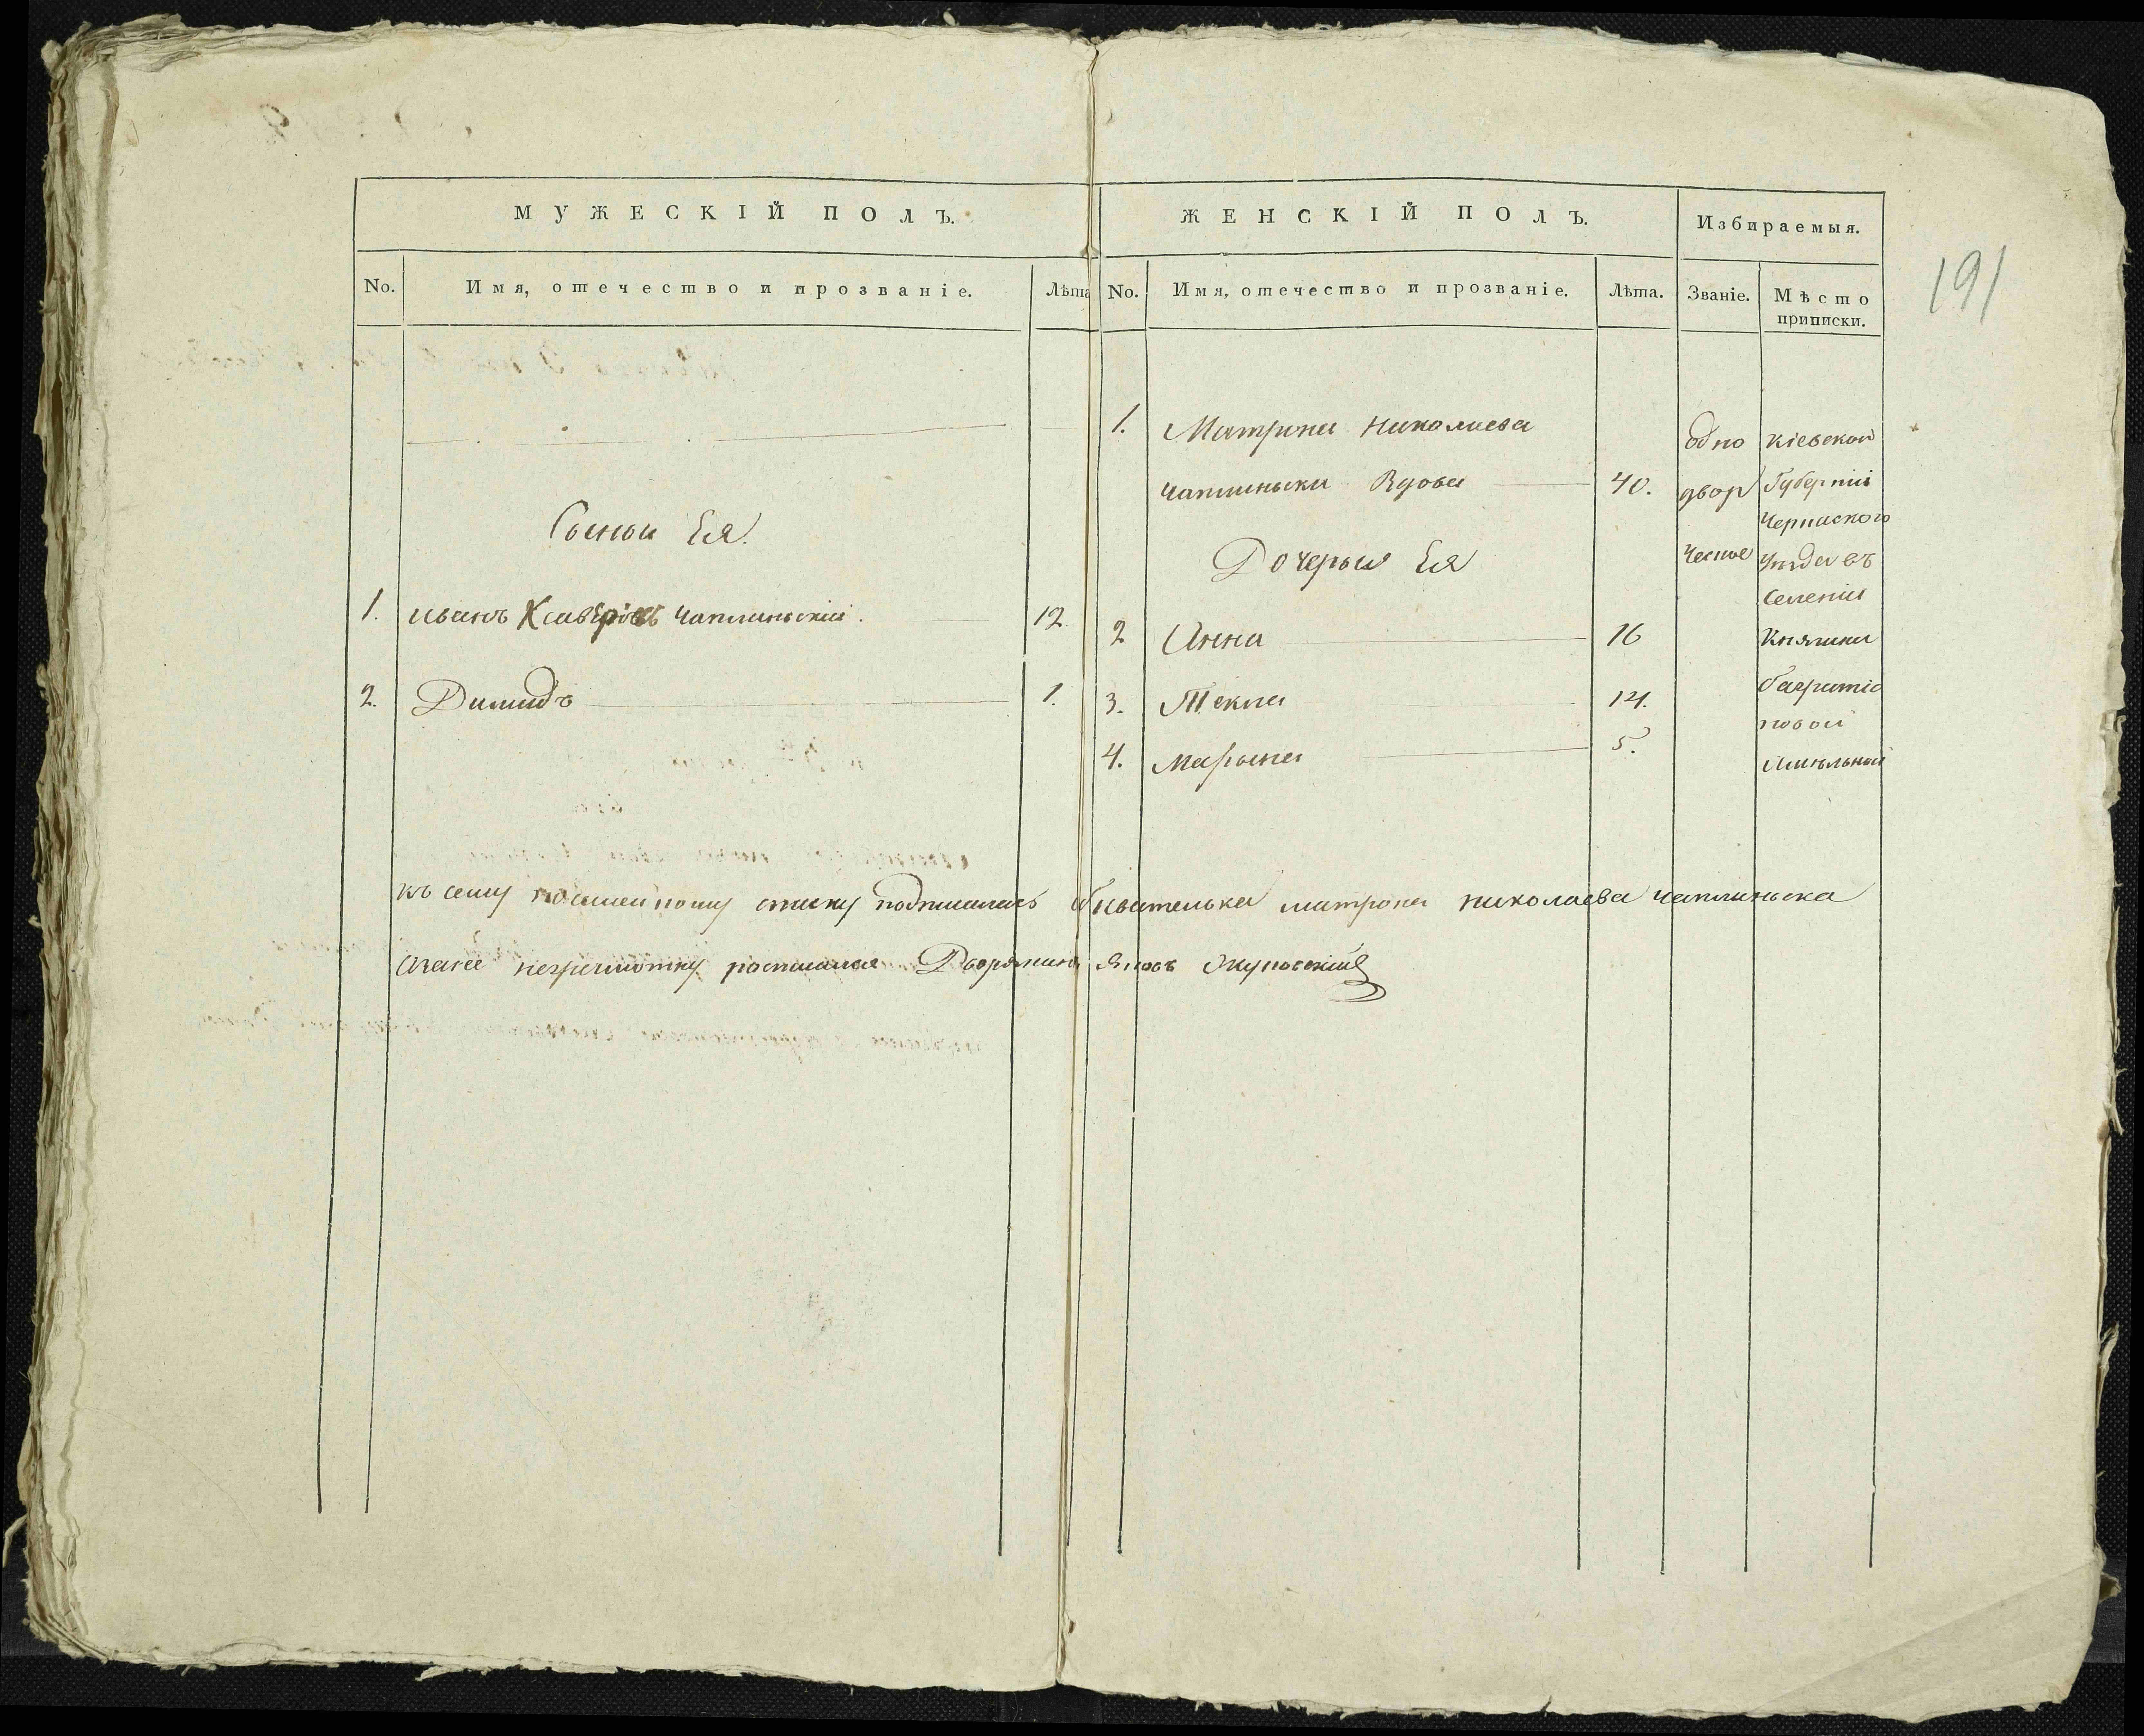 МУЖЕСКІЙ ПОЛЪ.
ЖЕНСКІЙ ПОЛЪ.
Избираемыя.
No.
Имя, отечество и прозваніе.
Лѣта
No.
Имя, отечество и прозваніе.
Лѣта.
Званіе.
Мѣсто
приписки.
191
1. Матрона Николаева
Чаплиньска Вдова 40.
одно
двор
ческое
Кіевской
Губерніи
Черкаского
Уезда въ
селеніи
Княгини
Багратіо
новой
Сыны Ея.
1. Иванъ Ксавѣріевъ Чаплиньскій. 12.
2. Димидъ 1.
Дочерыи Ея
2 Анна 16
3. Текла 14.
4. Марына 5.
къ сему посемейному списку подписалась обивателька матрона николаева чаплиньска
Аганее неграмотну росписался Дворянинъ Яковъ